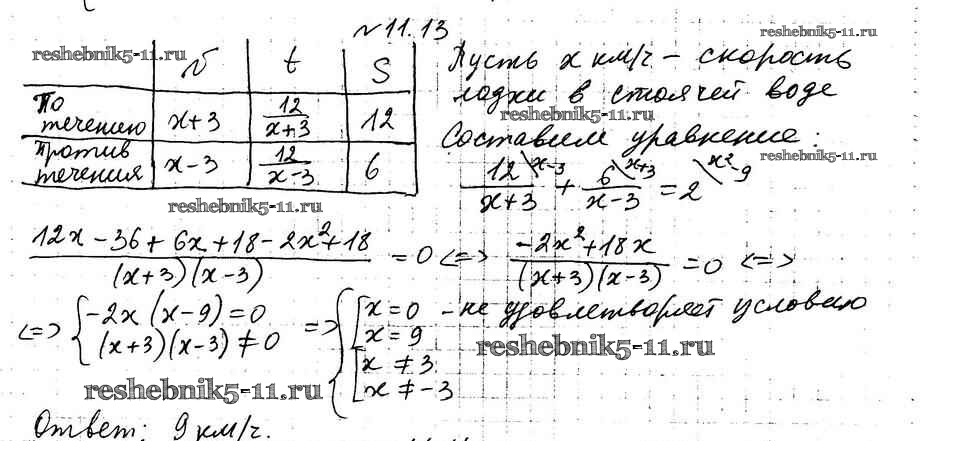 №11.13
reshebnik5-11.ru
reshebnik5-11.ru
v t S
По течению x+3 12/(x+3) 12
Против течения x-3 12/(x-3) 6
Пусть x км/ч – скорость
лодки в стоячей воде
reshebnik5-11.ru
Составим уравнение:
reshebnik5-11.ru
12/(x+3) \x-3 + 6/(x-3) \x+3 = 2 \x²-9
reshebnik5-11.ru
(12x-36+6x+18-2x²+18)/((x+3)(x-3)) =0 <=> (-2x²+18x)/((x+3)(x-3)) =0 <=>
<=> { -2x(x-9)=0 => { [ x=0 – не удовлетворяет условию
(x+3)(x-3)≠0 x=9
reshebnik5-11.ru
[ x≠3
reshebnik5-11.ru
x≠-3
Ответ: 9 км/ч.